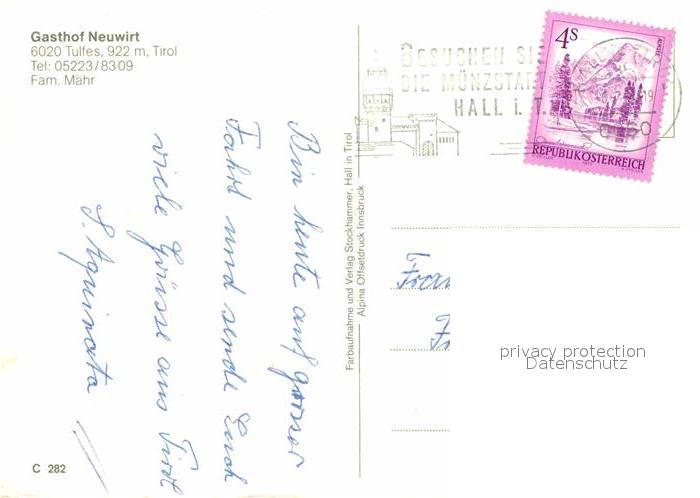 Gasthof Neuwirt
6020 Tulfes, 922 m, Tirol
Tel: 05223/8309
Fam. Mähr
Bin heute auf grosser
Fahrt und sende Euch
viele Grüsse aus Tirol
S. Aquinata
C 282
Farbaufnahme und Verlag Stockhammer, Hall in Tirol
Alpina Offsetdruck Innsbruck
BESUCHEN SI
DIE MÜNZSTA
HALL i. T
4S
ALMSEE
REPUBLIK ÖSTERREICH
19
Frau
privacy protection
Datenschutz